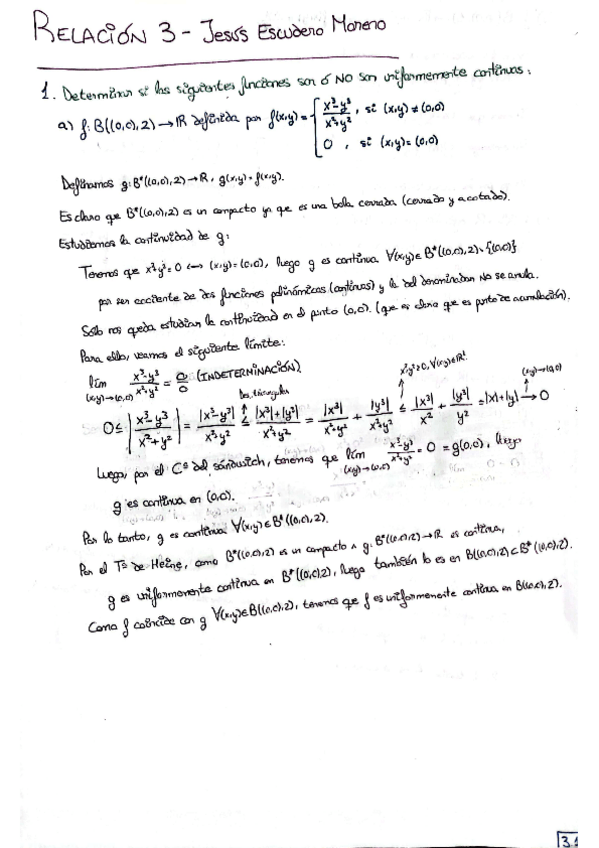 RELACIÓN 3 - Jesús Escudero Moreno
1. Determinar si las siguientes funciones son ó NO son uniformemente continuas:
a) f: B((0,0),2) → ℝ definida por f(x,y) = { x³-y³ / x²+y² , si (x,y) ≠ (0,0)
0 , si (x,y) = (0,0)
Definamos g: B*((0,0),2) → ℝ, g(x,y) = f(x,y).
Es claro que B*((0,0),2) es un compacto ya que es una bola cerrada (cerrado y acotado).
Estudiemos la continuidad de g:
Tenemos que x²+y²=0 ⟷ (x,y)=(0,0), luego g es continua ∀(x,y)∈B*((0,0),2)\{(0,0)}
por ser cociente de dos funciones polinómicas (continuas) y la del denominador NO se anula.
Sólo nos queda estudiar la continuidad en el punto (0,0). (que es claro que es punto de acumulación).
Para ello, veamos el siguiente límite:
lím (x,y)→(0,0) x³-y³ / x²+y² = 0/0 (INDETERMINACIÓN).
Des. triangular
x²,y²≥0, ∀(x,y)∈ℝ²
(x,y)→(0,0)
0 ≤ | x³-y³ / x²+y² | = |x³-y³| / x²+y² ≤ |x³|+|y³| / x²+y² = |x³| / x²+y² + |y³| / x²+y² ≤ |x³| / x² + |y³| / y² = |x|+|y| → 0
Luego, por el Cº del sándwich, tenemos que lím (x,y)→(0,0) x³-y³ / x²+y² = 0 = g(0,0), luego
g es continua en (0,0).
Por lo tanto, g es continua ∀(x,y)∈B*((0,0),2).
Por el Tª de Heine, como B*((0,0),2) es un compacto ∧ g: B*((0,0),2) → ℝ es continua,
g es uniformemente continua en B*((0,0),2), luego también lo es en B((0,0),2)⊂B*((0,0),2).
Como f coincide con g ∀(x,y)∈B((0,0),2), tenemos que f es uniformemente continua en B((0,0),2).
3.1